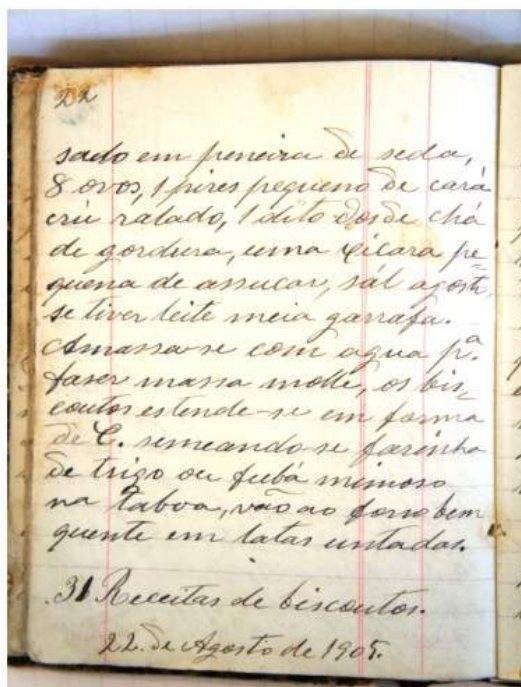 22
sado em peneira de seda,
8 ovos, 1 pires pequeno de cará
crú ralado, 1 dito dos de chá
de gordura, uma chicara pe=
quena de assucar, sal agosto,
se tiver leite meia garrafa.
Amassa-se com agua pª.
faser massa molle, os bis=
coutos estende-se em forma
de C. semeando-se farinha
de trigo ou fubá mimoso
na taboa, vão ao forno bem
quente em latas untadas.
31 Receitas de biscoutos.
22 de Agosto de 1905.